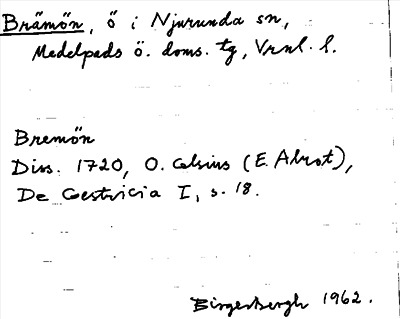 Brämön, ö i Njurunda sn,
Medelpads ö. doms. tg, Vrnl. l.
Bremön
Diss. 1720, O. Celsius (E. Alrot),
De Gestricia I, s. 18.
Birgerbergh 1962.